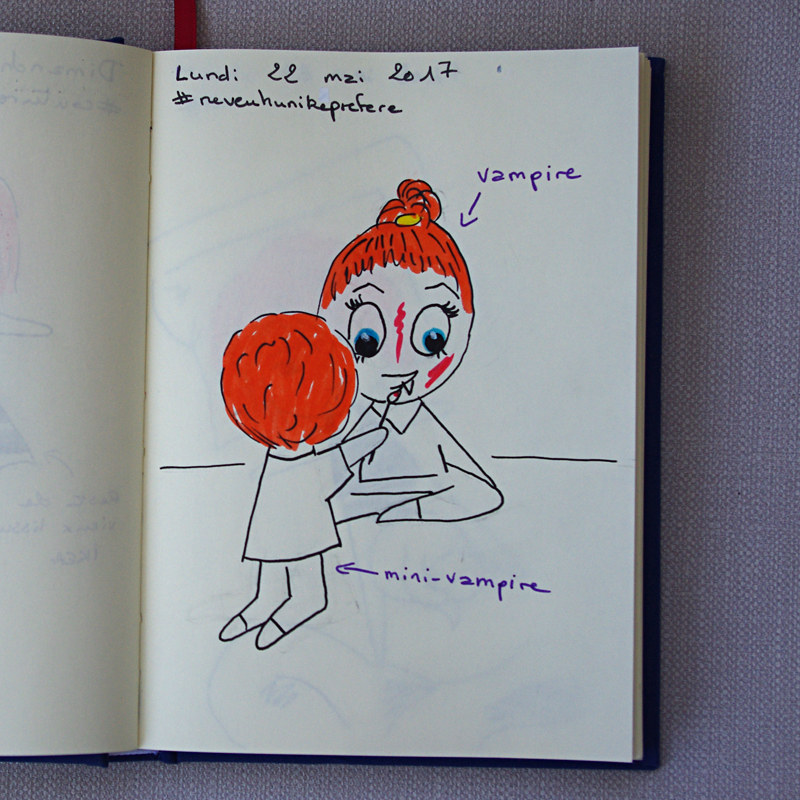 Lundi 22 mai 2017
#neveuhunikeprefere
vampire
mini-vampire